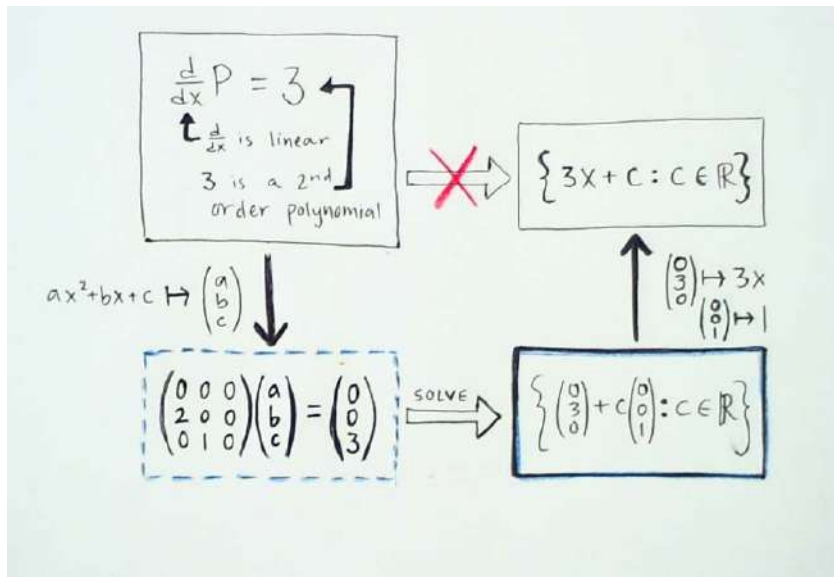 d/dx P = 3
d/dx is linear
3 is a 2nd
order polynomial
{3x + c : c ∈ ℝ}
ax²+bx+c ↦ (a b c)
(0 3 0) ↦ 3x
(0 0 1) ↦ 1
(0 0 0
2 0 0
0 1 0) (a b c) = (0 0 3)
SOLVE
{(0 3 0) + c (0 0 1) : c ∈ ℝ}